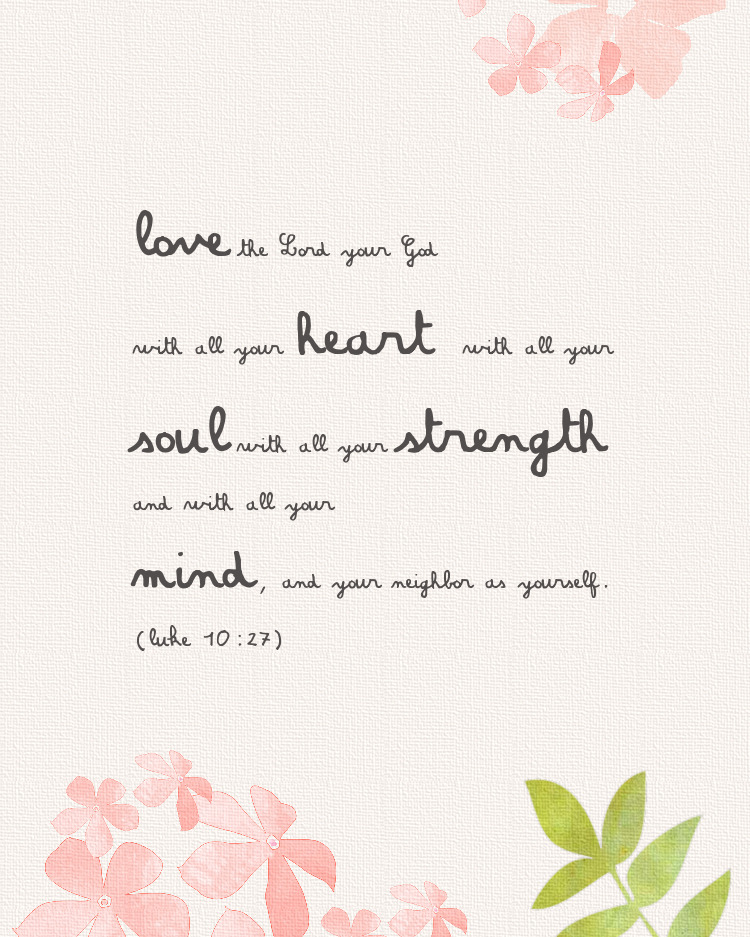 love the Lord your God
with all your heart with all your
soul with all your strength
and with all your
mind, and your neighbor as yourself.
(luke 10:27)